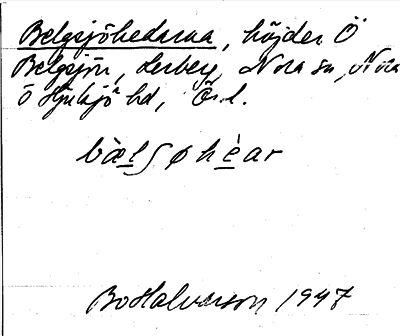 Belgsjöhedarna, höjder Ö
Belgsjön, Lerberg, Nora sn, Nora
o Hjulsjö hd, Ör. l.
bæ̀lʃøhèar
Bo Halvarson 1947